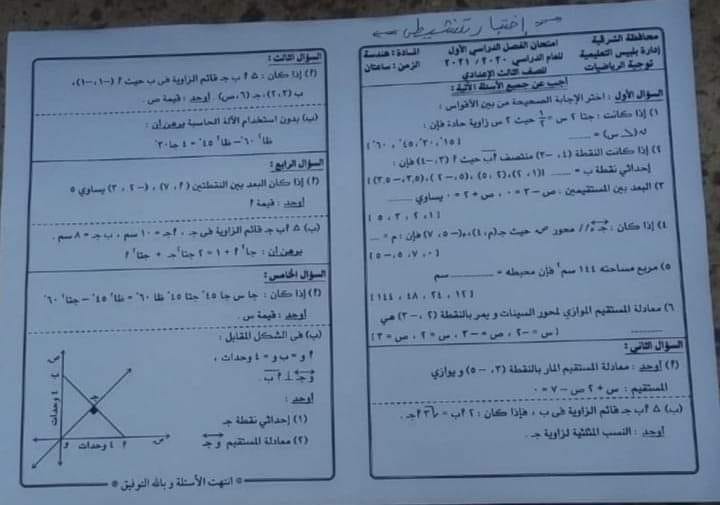 إختبار تنشيطى
محافظة الشرقية
إدارة بلبيس التعليمية
توجية الرياضيات
امتحان الفصل الدراسي الأول
للعام الدراسي ٢٠٢٠ / ٢٠٢١
للصف الثالث الإعدادي
المادة : هندسة
الزمن : ساعتان
أجب عن جميع الأسئلة الآتية :
السؤال الأول : اختر الإجابة الصحيحة من بين الأقواس :
١) إذا كانت : جتا ٢ س = ١/٢ حيث ٢ س زاوية حادة فإن :
ق (∠ س) = ...... (١٥° ، ٣٠° ، ٤٥° ، ٦٠°)
٢) إذا كانت النقطة (٤ ، −٣) منتصف أب حيث أ (٣ ، −٤) فإن :
إحداثي نقطة ب = ...... ((١ ، ٢) ، (٢ ، ٥) ، (٥ ، −٢) ، (٣,٥ ، −٣,٥))
٣) البعد بين المستقيمين : ص − ٣ = ٠ ، ص + ٢ = ٠ يساوي ......
(١ ، ٢ ، ٣ ، ٥)
٤) إذا كان : جـ د // محور ص حيث جـ (م ، ٤) ، د (−٥ ، ٧) فإن : م = ...
(٠ ، ٧ ، ٥ ، −٥)
٥) مربع مساحته ١٤٤ سم٢ فإن محيطه = ............ سم
(١٢ ، ٢٤ ، ٤٨ ، ١٤٤)
٦) معادلة المستقيم الموازي لمحور السينات و يمر بالنقطة (٢ ، −٣) هي
............ (س = −٢ ، ص = −٣ ، س = ٢ ، ص = ٣)
السؤال الثاني :
(أ) أوجد : معادلة المستقيم المار بالنقطة (٣ ، −٥) و يوازي
المستقيم : س + ٢ ص − ٧ = ٠
(ب) △ أ ب جـ قائم الزاوية في ب ، فإذا كان : ٢ أ ب = √٣ أ جـ .
أوجد : النسب المثلثية لزاوية جـ .
السؤال الثالث :
(أ) إذا كان : △ أ ب جـ قائم الزاوية فى ب حيث أ (−١ ، −١) ،
ب (٢ ، ٣) ، جـ (٦ ، ص) . أوجد : قيمة ص .
(ب) بدون استخدام الآلة الحاسبة برهن أن :
ظا٢ ٦٠° − ظا٢ ٤٥° = ٤ جا ٣٠°
السؤال الرابع :
(أ) إذا كان البعد بين النقطتين (أ ، ٧) ، (−٢ ، ٣) يساوي ٥
أوجد : قيمة أ
(ب) △ أ ب جـ قائم الزاوية فى جـ ، أجـ = ١٠ سم ، ب جـ = ٨ سم .
برهن أن : جا٢ أ + ١ = ٢ جتا٢ جـ + جتا٢ أ
السؤال الخامس :
(أ) إذا كان : جا س جا ٤٥° جتا ٤٥° ظا ٦٠° = ظا٢ ٤٥° − جتا٢ ٦٠°
أوجد : قيمة س .
(ب) فى الشكل المقابل :
أ و = ب و = ٤ وحدات ،
و جـ ⊥ أ ب .
أوجد :
(١) إحداثي نقطة جـ
(٢) معادلة المستقيم و جـ
ص
ب
٤ وحدات
جـ
و
٤ وحدات
أ
س
* انتهت الأسئلة و بالله التوفيق *